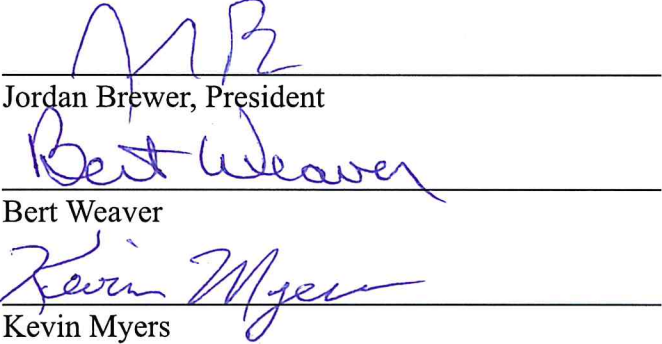 Jordan Brewer, President
Bert Weaver
Bert Weaver
Kevin Myers
Kevin Myers